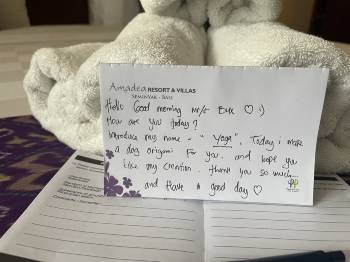 Amadea RESORT & VILLAS
SEMINYAK - BALI
Hello Good morning mr/s Buck ♡ :)
How are you today?
Introduce my name - " Yoga ", Today i make
a dog origami For you. and hope you
Like my creation. thank you so much...
and Have a good day ♡